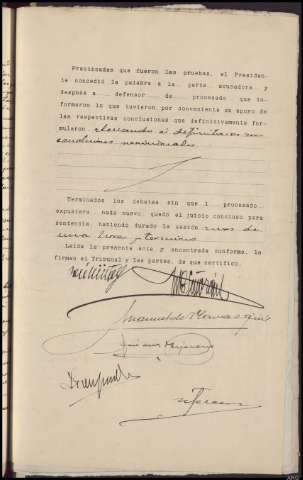 Practicadas que fueron las pruebas, el Presiden-
te concedió la palabra a la parte acusadora y
después a defensor de procesado que in-
formaron lo que tuvieron por conveniente en apoyo de
las respectivas conclusiones que definitivamente for-
mularon elevando a definitivas sus
conclusiones provisionales
Terminados los debates sin que l procesado
expusiera nada nuevo, quedó el juicio concluso para
sentencia habiendo durado la sesión mas de
una hora y termino
Leída la presente acta y encontrada conforme, la
firma el Tribunal y las partes, de que certifico.
Manuel de